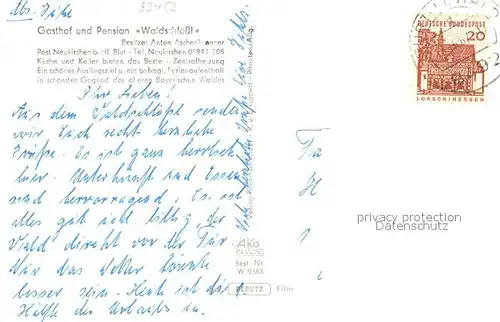 Abs. Jähe
33452
Gasthof und Pension »Waldschlößl«
Besitzer Anton Aschenbrenner
Post Neukirchen b. Hl. Blut - Tel. Neukirchen 01947 106
Küche und Keller bieten das Beste - Zentralheizung
Ein schönes Ausflugsziel und ein behagl. Ferienaufenthalt
in schönster Gegend des oberen Bayerischen Waldes
Ihr Lieben!
Aus dem Waldschlößl senden
wir Euch recht herzliche
Grüße. Es ist ganz herrlich
hier. Unterkunft und Essen
sind hervorragend. Es ist
alles gut und billig, der
Wald direkt vor der Tür.
Nur das Wetter könnte
besser sein. Heute ist die
Hälfte des Urlaubs um.
DEUTSCHE BUNDESPOST
20
LORSCH/HESSEN
Ako
Best. Nr.
W 9388
PERUTZ Film
privacy protection
Datenschutz